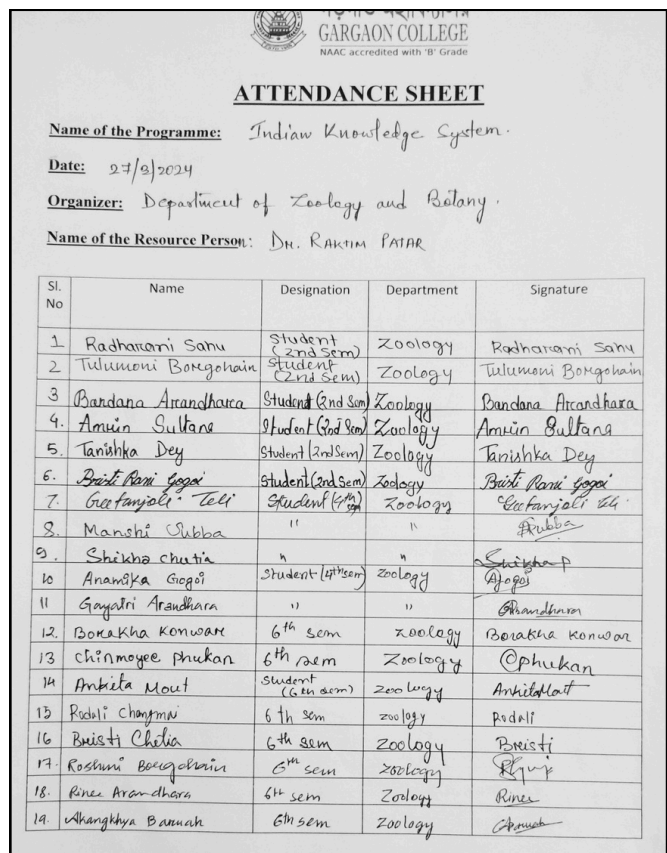 GARGAON COLLEGE
NAAC accredited with 'B' Grade
ATTENDANCE SHEET
Name of the Programme: Indian Knowledge System.
Date: 27/3/2024
Organizer: Department of Zoology and Botany.
Name of the Resource Person: DR. RAKTIM PATAR
Sl. No Name Designation Department Signature
1 Radharani Sahu Student (2nd Sem) Zoology Radharani Sahu
2 Tulumoni Borgohain Student (2nd Sem) Zoology Tulumoni Borgohain
3 Bandana Arandhara Student (2nd Sem) Zoology Bandana Arandhara
4. Amrin Sultana Student (2nd Sem) Zoology Amrin Sultana
5. Tanishka Dey Student (2nd Sem) Zoology Tanishka Dey
6. Bristi Rani Gogoi Student (2nd Sem) Zoology Bristi Rani Gogoi
7. Geetanjoli Teli Student (4th sem) Zoology Geetanjoli Teli
8. Manshi Subba " " Subba
9. Shikha Chutia " "
10 Anamika Gogoi Student (4th sem) Zoology AGogoi
11 Gayatri Arandhara " " GArandhara
12. Borakha Konwar 6th sem Zoology Borakha Konwar
13 Chinmoyee Phukan 6th sem Zoology Cphukan
14 Ankita Mout Student (6th sem) Zoology Ankita Mout
15 Rodali 6th sem Zoology Rodali
16 Bristi Chetia 6th sem Zoology Bristi
17. Roshmi Borgohain 6th sem Zoology
18. Rinee Arandhara 6th sem Zoology Rinee
19. Ahangkhya Baruah 6th sem Zoology